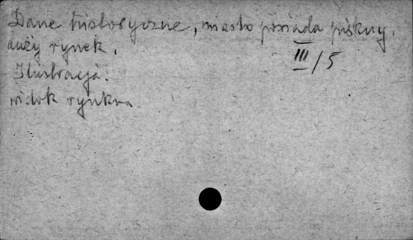 Dane historyczne, miasto posiada piękny,
duży rynek.
III/5
Ilustracja:
widok rynku